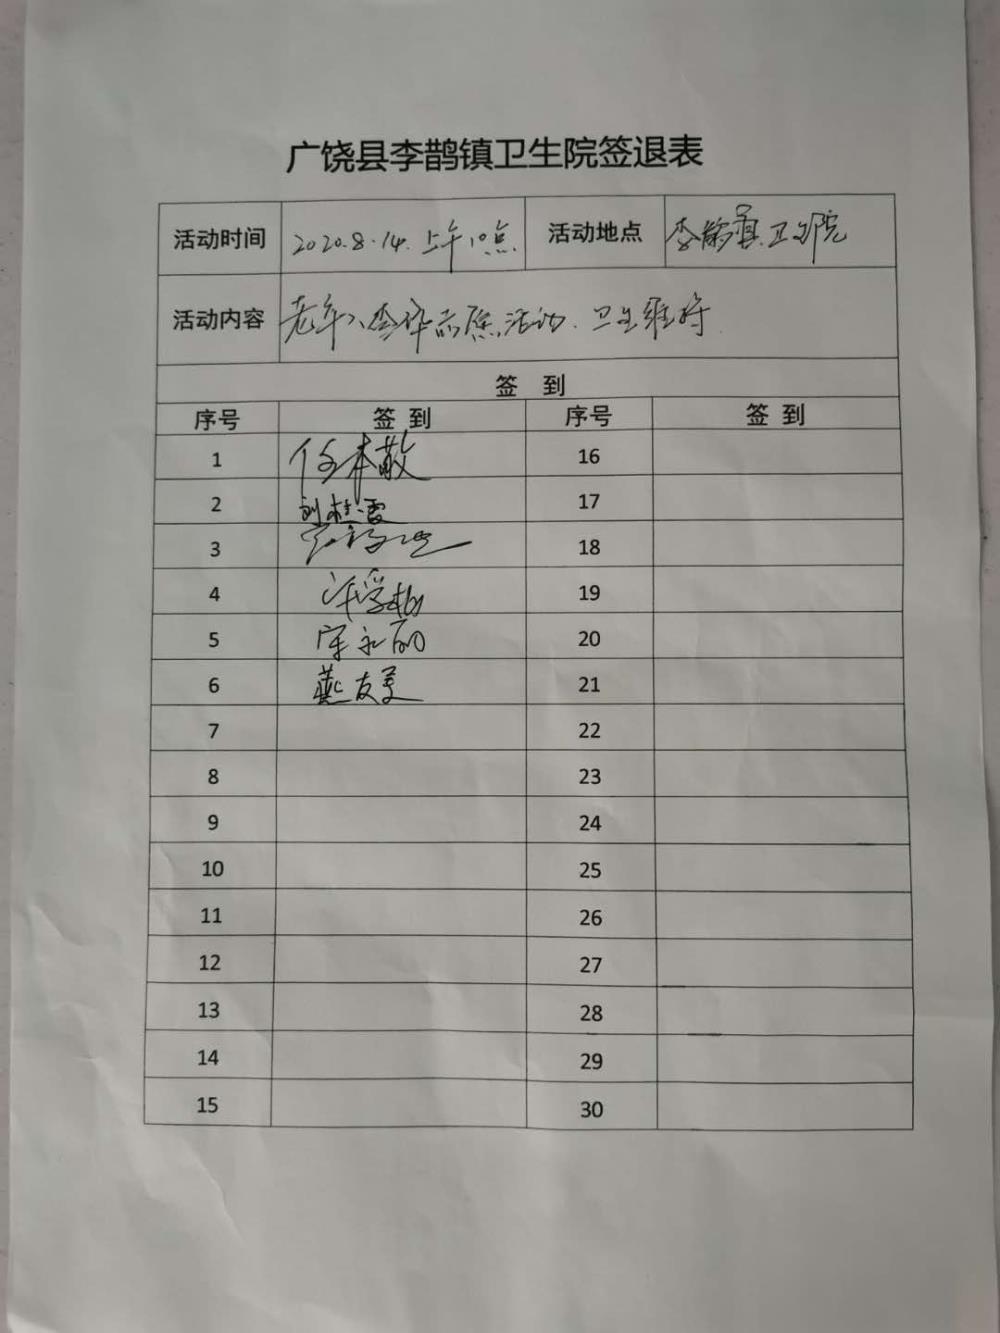 广饶县李鹊镇卫生院签退表
活动时间 2020.8.14.上午10点 活动地点 李鹊镇卫生院
活动内容 老年人查体 活动、卫生维持
签 到
序号 签 到 序号 签 到
1 任本敬 16
2 刘桂霞 17
3 18
4 许学 19
5 宋永丽 20
6 燕友美 21
7 22
8 23
9 24
10 25
11 26
12 27
13 28
14 29
15 30